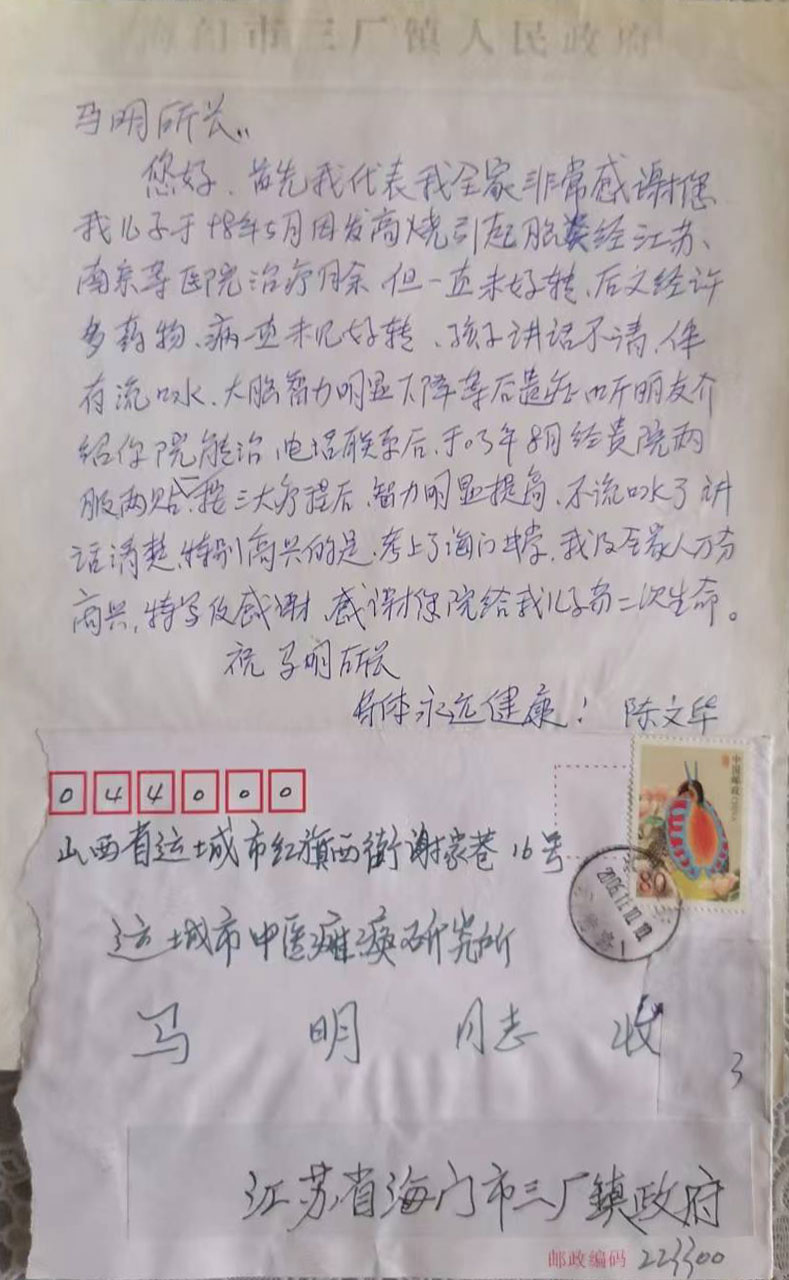 海门市三厂镇人民政府
马明所长:
您好、首先我代表我全家非常感谢您
我儿子于98年5月因发高烧引起脑炎经江苏、
南京等医院治疗月余但一直未好转、后又经许
多药物、病一直未见好转、孩子讲话不清、伴
有流口水、大脑智力明显下降等后遗症听朋友介
绍你院能治、电话联系后、于05年8月经贵院两
服两贴、按三大疗程后、智力明显提高、不流口水了讲
话清楚、特别高兴的是、考上了海门中学、我及全家人万分
高兴、特写信感谢、感谢你院给我儿子第二次生命。
祝马明所长
身体永远健康! 陈文华
044000
中国邮政
80
2005.11.10.10
山西省运城市红旗西街谢家巷16号
运城市中医瘫痪研究所
马明同志收
3
江苏省海门市三厂鎮政府
邮政编码 223300